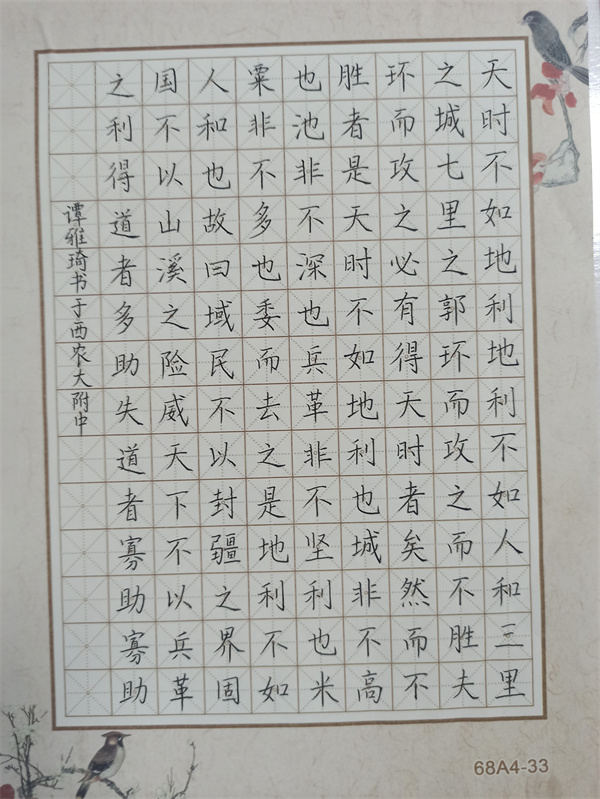 天时不如地利地利不如人和三里
之城七里之郭环而攻之而不胜夫
环而攻之必有得天时者矣然而不
胜者是天时不如地利也城非不高
也池非不深也兵革非不坚利也米
粟非不多也委而去之是地利不如
人和也故曰域民不以封疆之界固
国不以山溪之险威天下不以兵革
之利得道者多助失道者寡助寡助
谭雅琦书于西农大附中
68A4-33